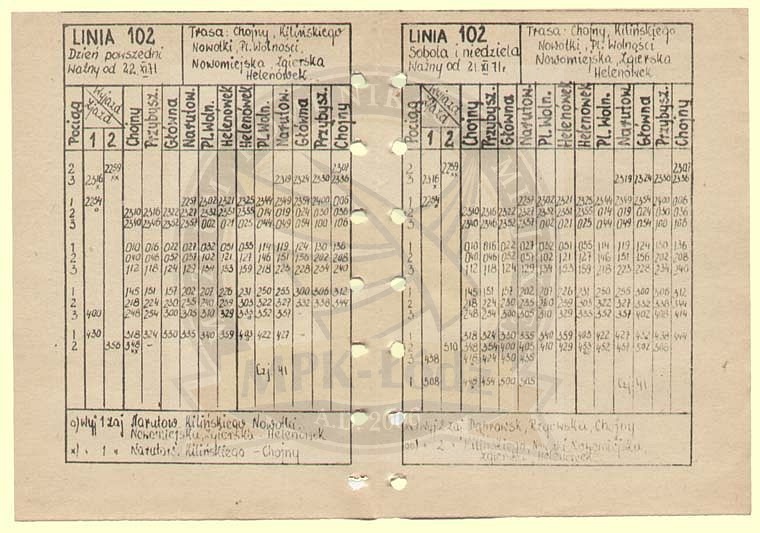 LINIA 102
Dzień powszedni
Ważny od 22.XI.71
Trasa: Chojny, Kilińskiego
Nowotki, Pl. Wolności,
Nowomiejska, Zgierska
Helenówek
Pociąg
Wyjazd
Zjazd
1 2
Chojny
Przybysz.
Główna
Narutow.
Pl. Woln.
Helenówek
Helenówek
Pl. Woln.
Narutow.
Główna
Przybysz.
Chojny
2 2259 2307
3 2316 2319 2324 2330 2336
1 2254 2251 2302 2321 2325 2344 2349 2354 2400 006
2 2310 2316 2322 2327 2332 2351 2355 014 019 024 030 036
3 2340 2346 2352 2351 002 021 025 044 049 054 100 106
1 010 016 022 027 032 051 055 114 119 124 130 136
2 040 046 052 057 102 121 127 146 151 156 202 208
3 112 118 124 129 134 153 159 218 223 228 234 240
1 145 151 157 202 207 226 231 250 255 300 306 312
2 218 224 230 235 240 259 303 322 327 332 338 344
3 400 248 254 300 305 310 329 352 357
1 430 318 324 330 335 340 359 403 422 427 -
2 356 348 -
Czj. 41
o) Wyj 1 zaj Narutow. Kilińskiego Nowotki,
Nowomiejska, Zgierska - Helenówek
x) " 1 " Narutow. Kilińskiego - Chojny
LINIA 102
Sobota i niedziela
Ważny od 21.XI.71r
Trasa: Chojny, Kilińskiego
Nowotki, Pl. Wolności
Nowomiejska, Zgierska
Helenówek
Pociąg
Wyjazd
Zjazd
1 2
Chojny
Przybysz.
Główna
Narutow.
Pl. Woln.
Helenówek
Helenówek
Pl. Woln.
Narutow.
Główna
Przybysz.
Chojny
2 2259 2307
3 2316 2319 2324 2330 2336
1 2254 2251 2302 2321 2325 2344 2349 2354 2400 006
2 2310 2316 2322 2327 2332 2351 2355 014 019 024 030 036
3 2340 2346 2352 2357 002 021 025 044 049 054 100 106
1 010 016 022 027 032 051 055 114 119 124 130 136
2 040 046 052 057 102 121 127 146 151 156 202 208
3 112 118 124 129 134 153 159 218 223 228 234 240
1 145 151 157 202 207 226 231 250 255 300 306 312
2 218 224 230 235 240 259 303 322 327 332 338 344
3 248 254 300 305 310 329 333 352 357 402 408 414
1 318 324 330 335 340 359 403 422 427 432 438 444
2 510 348 354 400 405 410 429 433 452 457 502 508
3 438 418 424 430 435
1 508 448 454 500 505
Czj. 41
o) Wyj 1 zaj Dąbrowsk, Rzgowska, Chojny
" 2 " Kilińskiego, Nowomiejska,
Zgierska - Helenówek
MPK-Łódź
A.D. 2000